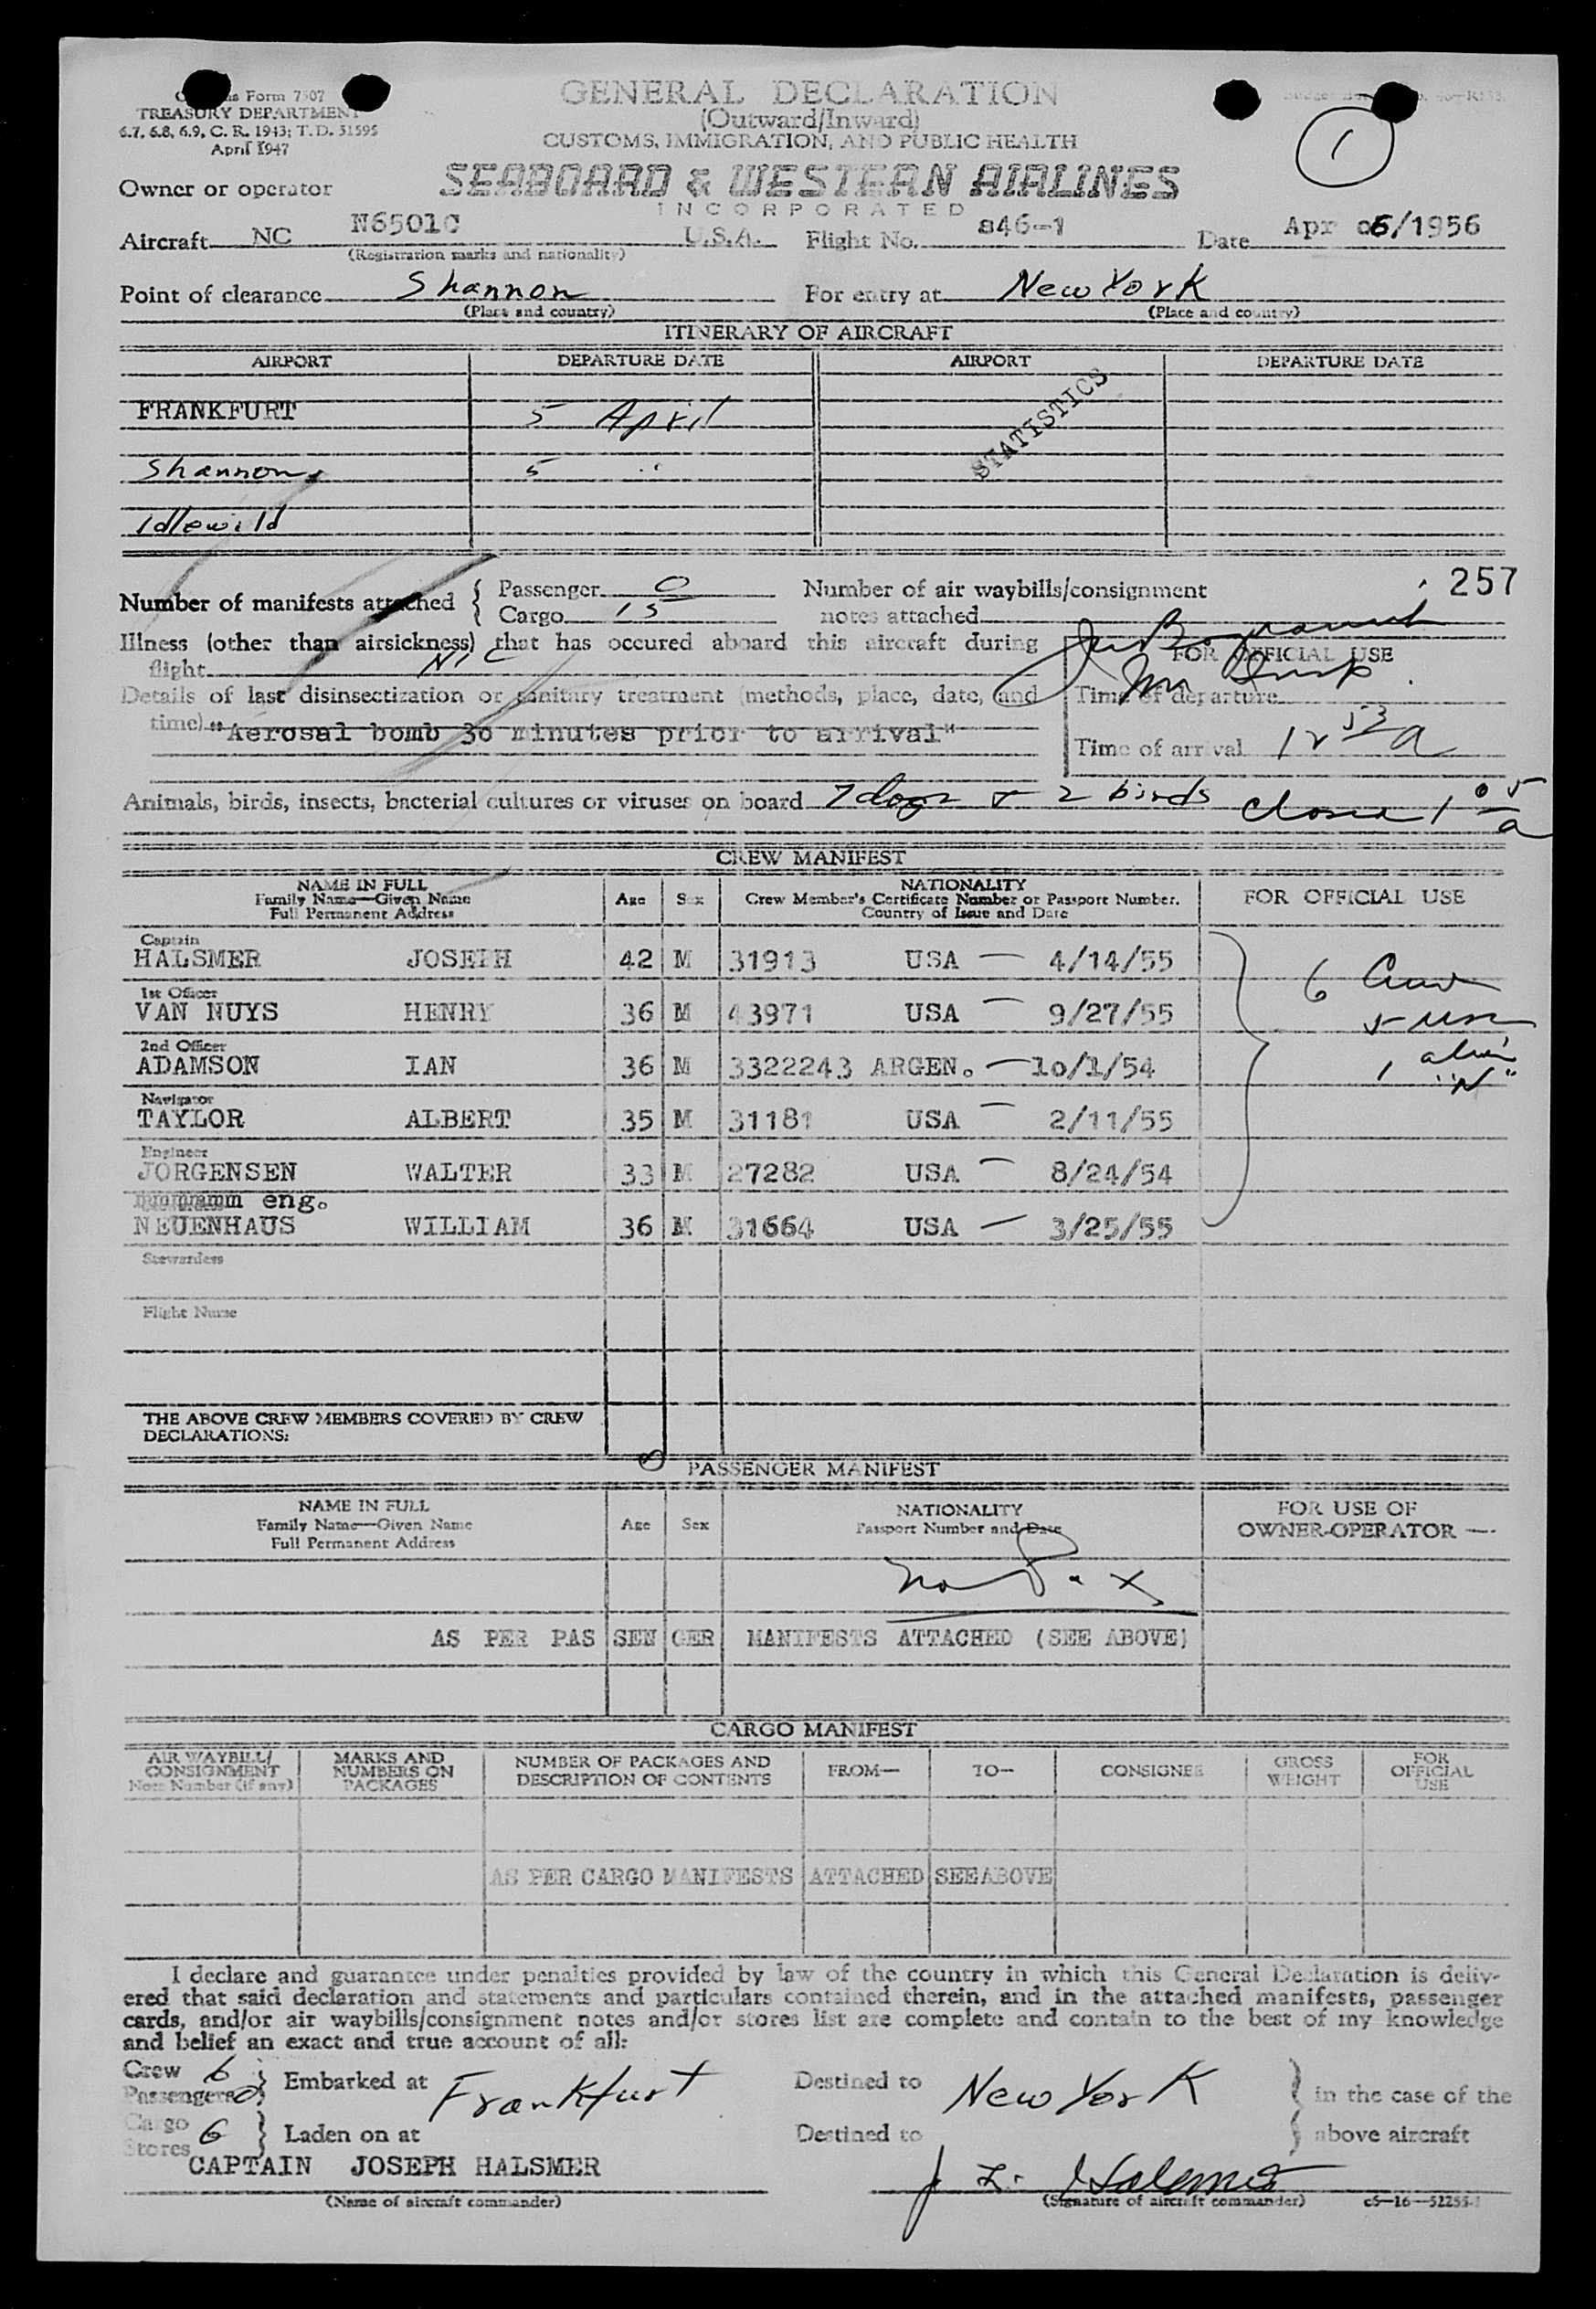 Form 7507
TREASURY DEPARTMENT
6.7, 6.8, 6.9, C. R. 1943; T. D. 51595
April 1947
GENERAL DECLARATION
(Outward/Inward)
CUSTOMS, IMMIGRATION, AND PUBLIC HEALTH
1
Owner or operator SEABOARD & WESTERN AIRLINES
INCORPORATED
Aircraft NC N6501C U.S.A. Flight No. 846-1 Date Apr 06/1956
(Registration marks and nationality)
Point of clearance Shannon For entry at New York
(Place and country) (Place and country)
ITINERARY OF AIRCRAFT
AIRPORT DEPARTURE DATE AIRPORT DEPARTURE DATE
FRANKFURT 5 April
STATISTICS
Shannon 5 "
Idlewild
Number of manifests attached { Passenger 0 Number of air waybills/consignment 257
Cargo 15 notes attached
Illness (other than airsickness) that has occured aboard this aircraft during
flight Nil
FOR OFFICIAL USE
Details of last disinsectization or sanitary treatment (methods, place, date, and
Time of departure
time) "Aerosal bomb 30 minutes prior to arrival"
Time of arrival 12 53 a
Animals, birds, insects, bacterial cultures or viruses on board 7 dogs & 2 birds closed 1 05 a
CREW MANIFEST
NAME IN FULL
Family Name—Given Name
Full Permanent Address
Age Sex
NATIONALITY
Crew Member's Certificate Number or Passport Number.
Country of Issue and Date
FOR OFFICIAL USE
Captain
HALSMER JOSEPH 42 M 31913 USA — 4/14/55
6 Crew
1st Officer
VAN NUYS HENRY 36 M 43971 USA — 9/27/55
5 USC
2nd Officer
ADAMSON IAN 36 M 3322243 ARGEN. — 10/1/54
1 alien "N"
Navigator
TAYLOR ALBERT 35 M 31181 USA — 2/11/55
Engineer
JORGENSEN WALTER 33 M 27282 USA — 8/24/54
eng.
NEUENHAUS WILLIAM 36 M 31664 USA — 3/25/55
Stewardess
Flight Nurse
THE ABOVE CREW MEMBERS COVERED BY CREW
DECLARATIONS:
PASSENGER MANIFEST
NAME IN FULL
Family Name—Given Name
Full Permanent Address
Age Sex
NATIONALITY
Passport Number and Date
FOR USE OF
OWNER-OPERATOR —
no Pax
AS PER PASSENGER MANIFESTS ATTACHED (SEE ABOVE)
CARGO MANIFEST
AIR WAYBILL/
CONSIGNMENT
Note Number (if any)
MARKS AND
NUMBERS ON
PACKAGES
NUMBER OF PACKAGES AND
DESCRIPTION OF CONTENTS
FROM—
TO—
CONSIGNEE
GROSS
WEIGHT
FOR
OFFICIAL
USE
AS PER CARGO MANIFESTS ATTACHED SEE ABOVE
I declare and guarantee under penalties provided by law of the country in which this General Declaration is deliv-
ered that said declaration and statements and particulars contained therein, and in the attached manifests, passenger
cards, and/or air waybills/consignment notes and/or stores list are complete and contain to the best of my knowledge
and belief an exact and true account of all:
Crew 6
Passengers 0 } Embarked at Frankfurt Destined to New York } in the case of the
Cargo
Stores 6 } Laden on at Destined to } above aircraft
CAPTAIN JOSEPH HALSMER J. L. Halsmer
(Name of aircraft commander) (Signature of aircraft commander) c5—16—52255-1